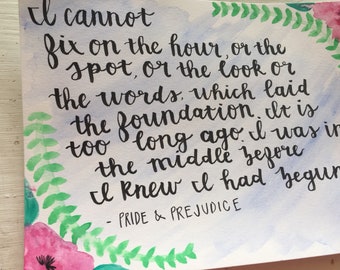 I cannot
fix on the hour, or the
spot, or the look or
the words, which laid
the foundation. It is
too long ago. I was in
the middle before
I knew I had begun
- PRIDE & PREJUDICE